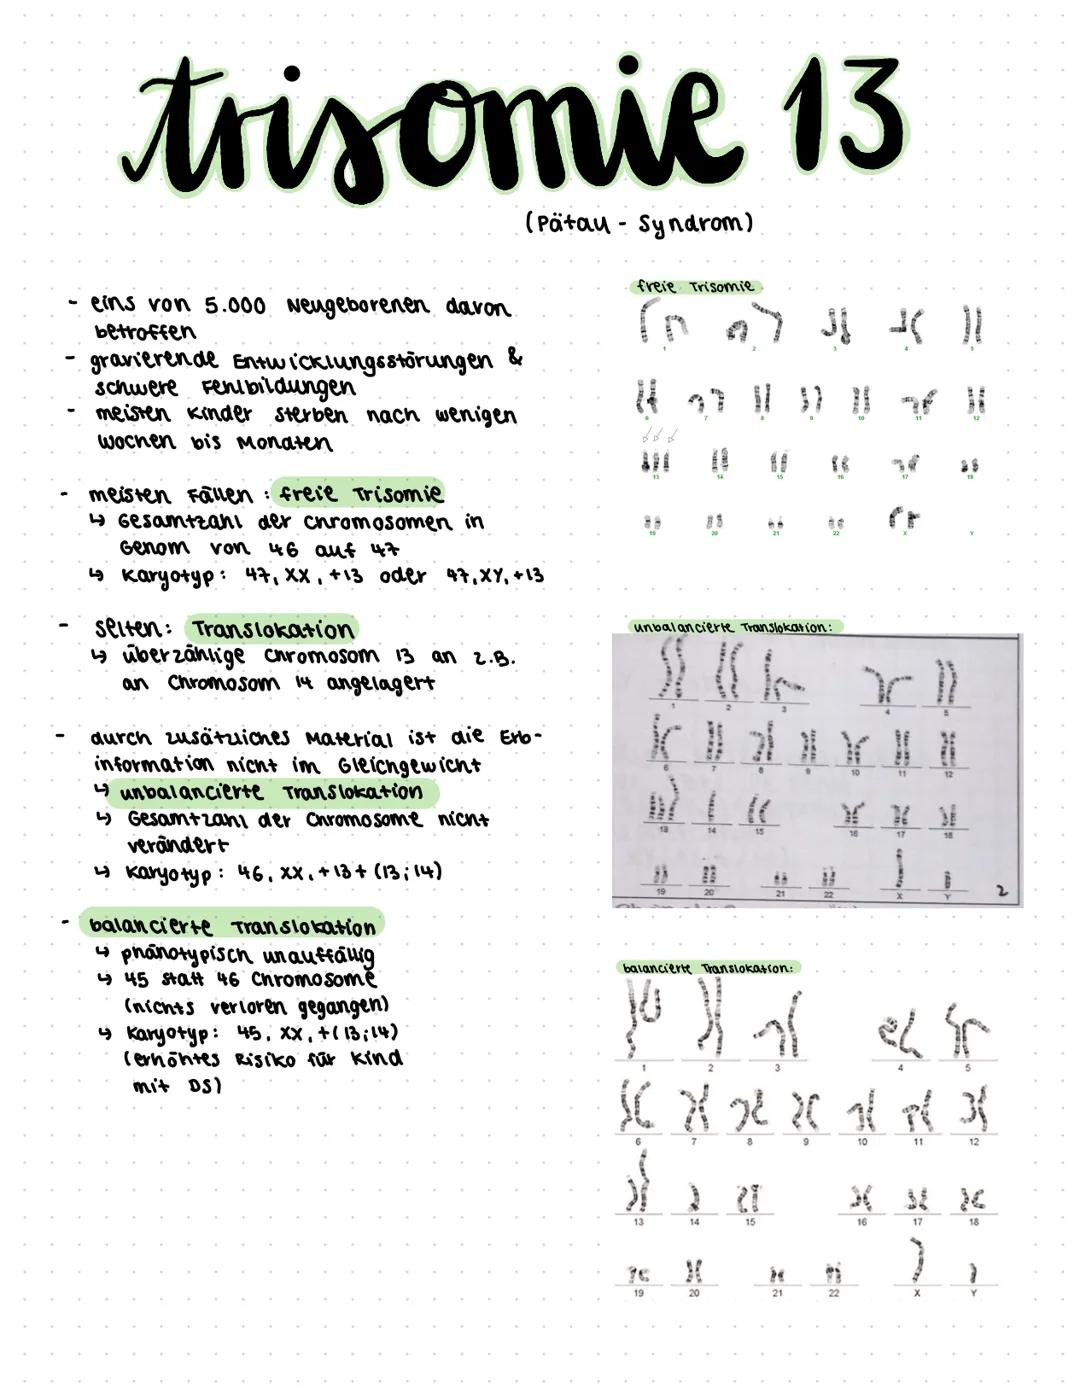 trisomie 13
(Pätau - Syndrom)
- eins von 5.000 Neugeborenen davon
betroffen
- gravierende Entwicklungsstörungen &
schwere Fehlbildungen
- meisten Kinder sterben nach wenigen
Wochen bis Monaten
- meisten Fällen : freie Trisomie
↳ Gesamtzahl der Chromosomen in
Genom von 46 auf 47
↳ Karyotyp: 47, XX, +13 oder 47, XY, +13
- selten: Translokation
↳ überzählige Chromosom 13 an z.B.
an Chromosom 14 angelagert
- durch zusätzliches Material ist die Erb-
information nicht im Gleichgewicht
↳ unbalancierte Translokation
↳ Gesamtzahl der Chromosome nicht
verändert
↳ Karyotyp: 46, XX, +13 + (13;14)
- balancierte Translokation
↳ phänotypisch unauffällig
↳ 45 statt 46 Chromosome
(nichts verloren gegangen)
↳ Karyotyp: 45, XX, +(13;14)
(erhöhtes Risiko für Kind
mit DS)
freie Trisomie
1 2 3 4 5
6 7 8 9 10 11 12
13 14 15 16 17 18
19 20 21 22 X Y
unbalancierte Translokation:
1 2 3 4 5
6 7 8 9 10 11 12
13 14 15 16 17 18
19 20 21 22 X Y
2
balancierte Translokation:
1 2 3 4 5
6 7 8 9 10 11 12
13 14 15 16 17 18
19 20 21 22 X Y